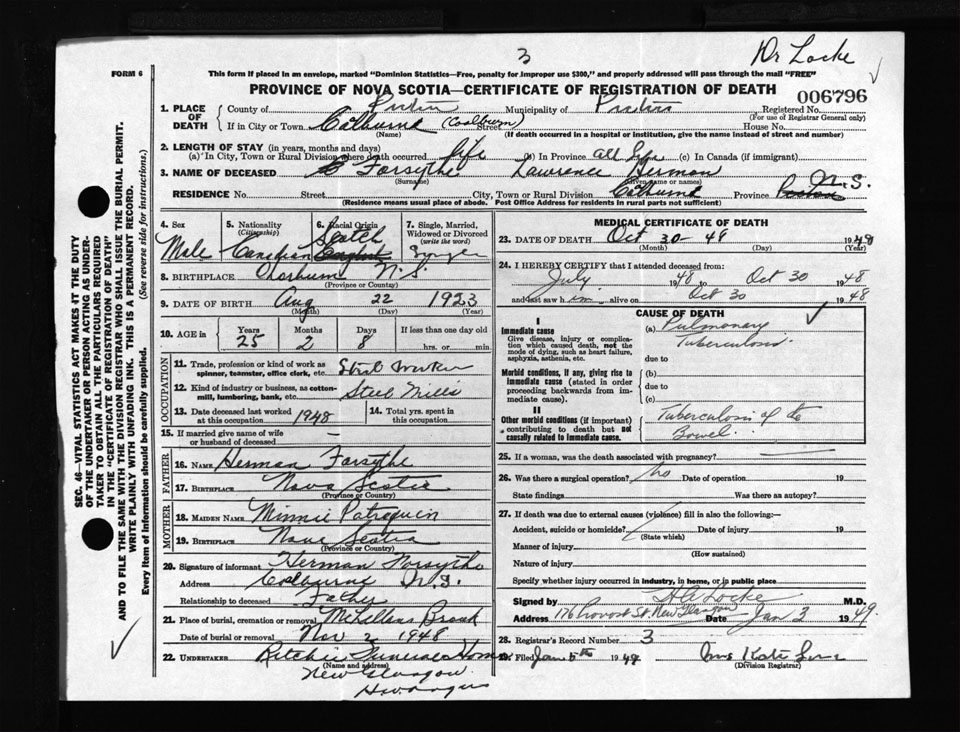 3
Dr Locke
FORM 6
This form if placed in an envelope, marked "Dominion Statistics—Free, penalty for improper use $300," and properly addressed will pass through the mail "FREE"
PROVINCE OF NOVA SCOTIA—CERTIFICATE OF REGISTRATION OF DEATH
006796
1. PLACE OF DEATH
County of Pictou Municipality of Pictou Registered No.
(For use of Registrar General only)
If in City or Town (Coalburn) Street House No.
(Name) (If death occurred in a hospital or institution, give the name instead of street and number)
2. LENGTH OF STAY (in years, months and days)
(a) In City, Town or Rural Division where death occurred life (b) In Province all life (c) In Canada (if immigrant)
3. NAME OF DECEASED Forsythe Lawrence Herman
(Surname) (Given name or names)
RESIDENCE No. Street City, Town or Rural Division Province N.S.
(Residence means usual place of abode. Post Office Address for residents in rural parts not sufficient)
4. Sex Male
5. Nationality (Citizenship) Canadian
6. Racial Origin Scotch English
7. Single, Married, Widowed or Divorced (write the word) Single
8. BIRTHPLACE N.S.
(Province or Country)
9. DATE OF BIRTH Aug 22 1923
(Month) (Day) (Year)
10. AGE in Years 25 Months 2 Days 8 If less than one day old hrs. or min.
OCCUPATION
11. Trade, profession or kind of work as spinner, teamster, office clerk, etc. Steel Worker
12. Kind of industry or business, as cotton-mill, lumbering, bank, etc. Steel Mills
13. Date deceased last worked at this occupation 1948
14. Total yrs. spent in this occupation
15. If married give name of wife or husband of deceased
FATHER
16. NAME Herman Forsythe
17. BIRTHPLACE Nova Scotia
(Province or Country)
MOTHER
18. MAIDEN NAME Minnie Patriquin
19. BIRTHPLACE Nova Scotia
(Province or Country)
20. Signature of informant Herman Forsythe
Address Coalburne N.S.
Relationship to deceased Father
21. Place of burial, cremation or removal McLellans Brook
Date of burial or removal Nov 2 1948
22. UNDERTAKER Ritchie Funeral Home
(Name and address)
New Glasgow
MEDICAL CERTIFICATE OF DEATH
23. DATE OF DEATH Oct 30 - 48 1948
(Month) (Day) (Year)
24. I HEREBY CERTIFY that I attended deceased from:
July 1948 to Oct 30 1948
and last saw him alive on Oct 30 1948
CAUSE OF DEATH
I
Immediate cause
Give disease, injury or complication which caused death, not the mode of dying, such as heart failure, asphyxia, asthenia, etc.
(a) Pulmonary Tuberculosis
due to
Morbid conditions, if any, giving rise to immediate cause (stated in order proceeding backwards from immediate cause).
(b)
due to
(c)
II
Other morbid conditions (if important) contributing to death but not causally related to immediate cause.
Tuberculosis of the Bowel.
25. If a woman, was the death associated with pregnancy?
26. Was there a surgical operation? no Date of operation 19
State findings Was there an autopsy?
27. If death was due to external causes (violence) fill in also the following:—
Accident, suicide or homicide? Date of injury 19
(State which)
Manner of injury
(How sustained)
Nature of injury
Specify whether injury occurred in industry, in home, or in public place
Signed by Locke M.D.
Address 176 Provost St New Glasgow Date Jan 3 1949
28. Registrar's Record Number 3
29. Filed Jan 5th 1949 Mrs Kate
(Division Registrar)
SEC. 46—VITAL STATISTICS ACT MAKES IT THE DUTY
OF THE UNDERTAKER OR PERSON ACTING AS UNDER-
TAKER TO OBTAIN ALL THE PARTICULARS REQUIRED
IN THE "CERTIFICATE OF REGISTRATION OF DEATH"
AND TO FILE THE SAME WITH THE DIVISION REGISTRAR WHO SHALL ISSUE THE BURIAL PERMIT.
WRITE PLAINLY WITH UNFADING INK. THIS IS A PERMANENT RECORD.
Every item of Information should be carefully supplied. (See reverse side for instructions.)